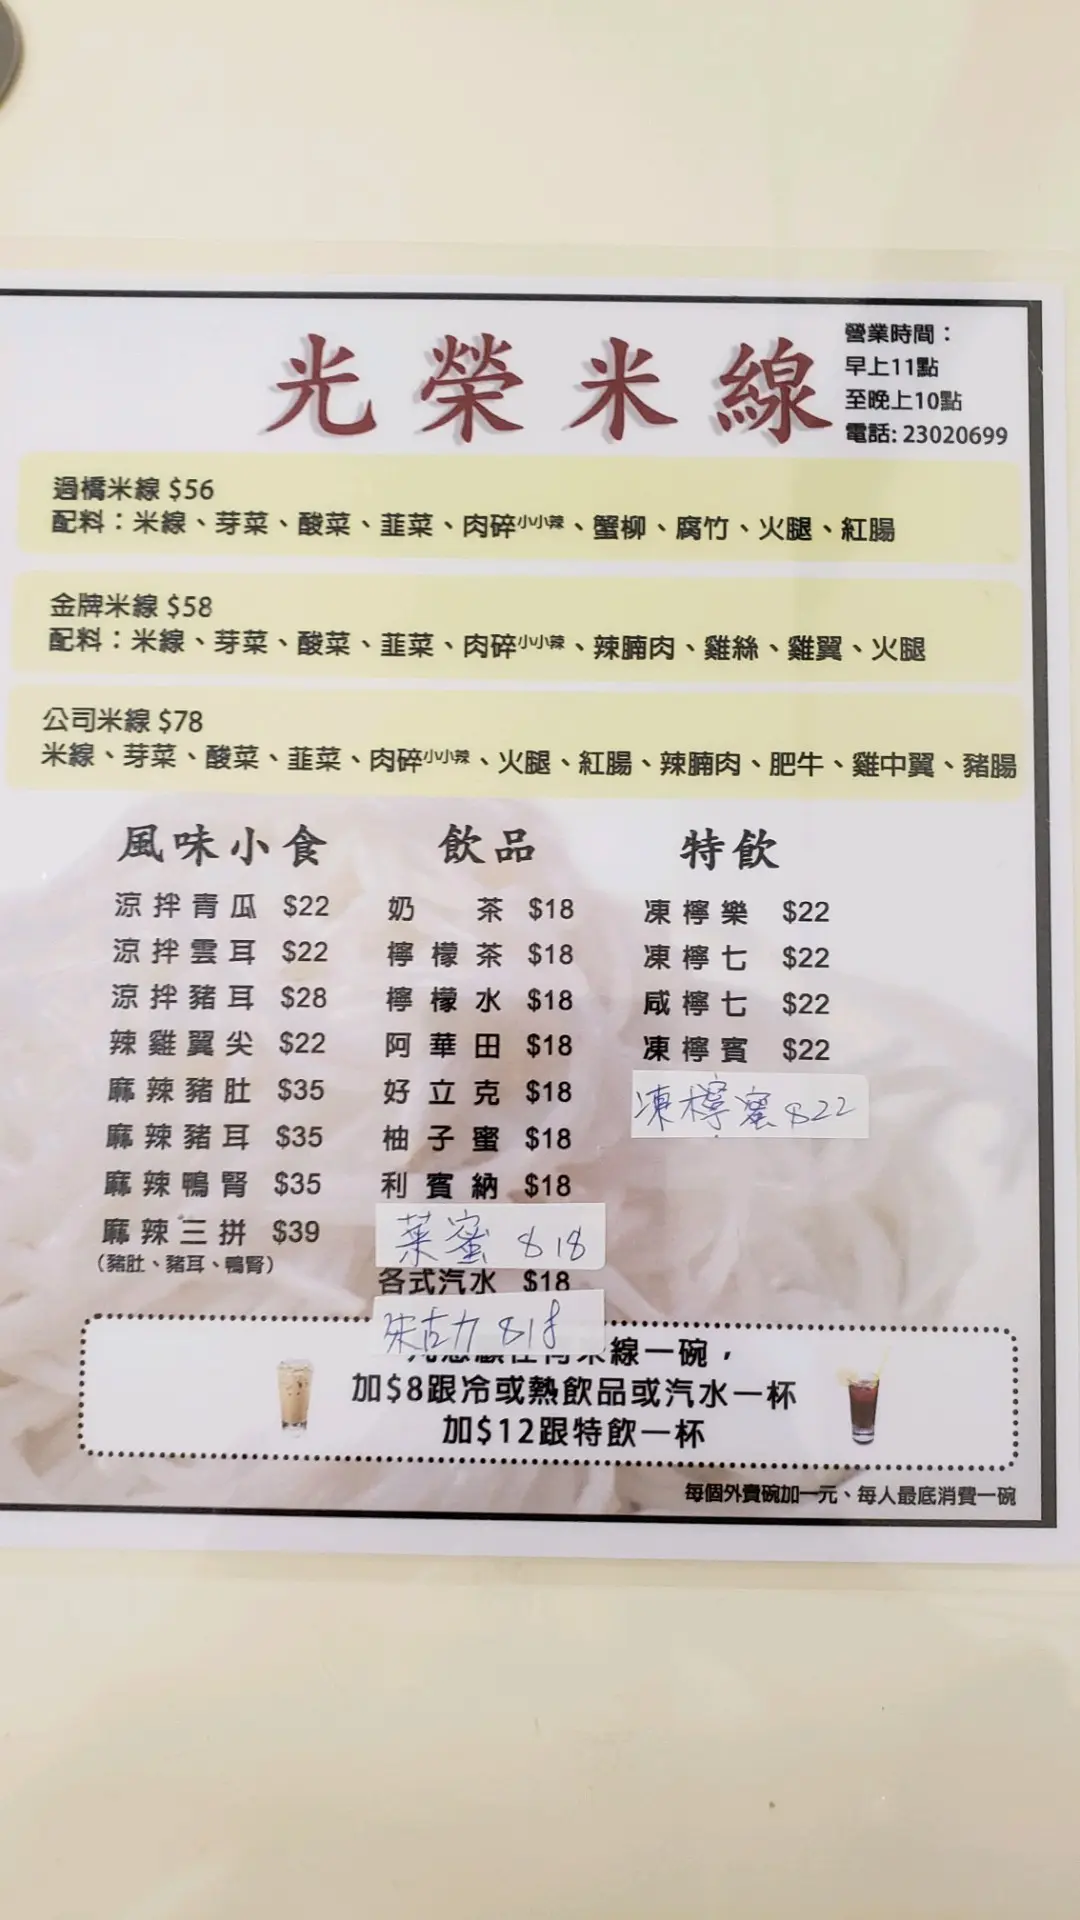 光榮米線
營業時間：
早上11點
至晚上10點
電話: 23020699
過橋米線 $56
配料：米線、芽菜、酸菜、韮菜、肉碎小小辣、蟹柳、腐竹、火腿、紅腸
金牌米線 $58
配料：米線、芽菜、酸菜、韮菜、肉碎小小辣、辣腩肉、雞絲、雞翼、火腿
公司米線 $78
米線、芽菜、酸菜、韮菜、肉碎小小辣、火腿、紅腸、辣腩肉、肥牛、雞中翼、豬腸
風味小食
涼拌青瓜 $22
涼拌雲耳 $22
涼拌豬耳 $28
辣雞翼尖 $22
麻辣豬肚 $35
麻辣豬耳 $35
麻辣鴨腎 $35
麻辣三拼 $39
（豬肚、豬耳、鴨腎）
飲品
奶茶 $18
檸檬茶 $18
檸檬水 $18
阿華田 $18
好立克 $18
柚子蜜 $18
利賓納 $18
菜蜜 $18
各式汽水 $18
朱古力 $18
特飲
凍檸樂 $22
凍檸七 $22
咸檸七 $22
凍檸賓 $22
凍檸蜜 $22
線一碗，
加$8跟冷或熱飲品或汽水一杯
加$12跟特飲一杯
每個外賣碗加一元、每人最底消費一碗